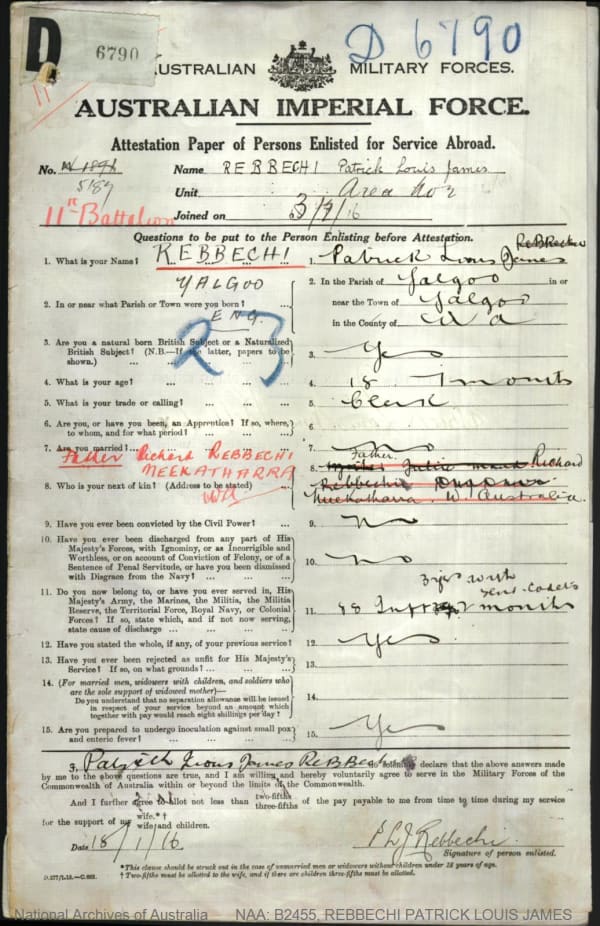 D 6790 D 6790
11
AUSTRALIAN MILITARY FORCES.
AUSTRALIAN IMPERIAL FORCE.
Attestation Paper of Persons Enlisted for Service Abroad.
No. 5189 Name REBBECHI Patrick Louis James
Unit Area No 2
11th Battalion Joined on /16
Questions to be put to the Person Enlisting before Attestation.
1. What is your Name? REBBECHI 1. Patrick Louis James Rebbechi
YALGOO 2. In the Parish of Yalgoo in or
2. In or near what Parish or Town were you born? near the Town of Yalgoo
ENG. in the County of W A
23
3. Are you a natural born British Subject or a Naturalized British Subject? (N.B.—If the latter, papers to be shown.) 3. Yes
4. What is your age? 4. 18 1 month
5. What is your trade or calling? 5. Clerk
6. Are you, or have you been, an Apprentice? If so, where, to whom, and for what period?
7. Are you married? 7. No
Father Richard REBBECHI Father
MEEKATHARRA 8. Richard
8. Who is your next of kin? (Address to be stated) Rebbechi
WA Meekatharra. W. Australia.
9. Have you ever been convicted by the Civil Power? 9. No
10. Have you ever been discharged from any part of His Majesty's Forces, with Ignominy, or as Incorrigible and Worthless, or on account of Conviction of Felony, or of a Sentence of Penal Servitude, or have you been dismissed with Disgrace from the Navy? 10. No
3 yrs with Sen. Cadets
11. Do you now belong to, or have you ever served in, His Majesty's Army, the Marines, the Militia, the Militia Reserve, the Territorial Force, Royal Navy, or Colonial Forces? If so, state which, and if not now serving, state cause of discharge 11. months
12. Have you stated the whole, if any, of your previous service? 12. Yes
13. Have you ever been rejected as unfit for His Majesty's Service? If so, on what grounds? 13.
14. (For married men, widowers with children, and soldiers who are the sole support of widowed mother)—
Do you understand that no separation allowance will be issued in respect of your service beyond an amount which together with pay would reach eight shillings per day? 14.
15. Are you prepared to undergo inoculation against small pox and enteric fever? 15. Yes
I, Patrick Louis James Rebbechi do solemnly declare that the above answers made
by me to the above questions are true, and I am willing and hereby voluntarily agree to serve in the Military Forces of the
Commonwealth of Australia within or beyond the limits of the Commonwealth.
And I further agree to allot not less than two-fifths three-fifths of the pay payable to me from time to time during my service
for the support of my wife.*† wife and children.
Date 18/1/16. P L J Rebbechi
Signature of person enlisted.
*This clause should be struck out in the case of unmarried men or widowers without children under 18 years of age.
† Two-fifths must be allotted to the wife, and if there are children three-fifths must be allotted.
National Archives of Australia NAA: B2455, REBBECHI PATRICK LOUIS JAMES